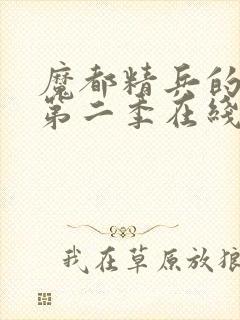 魔都精兵的
第二季在线
我在草原放狼